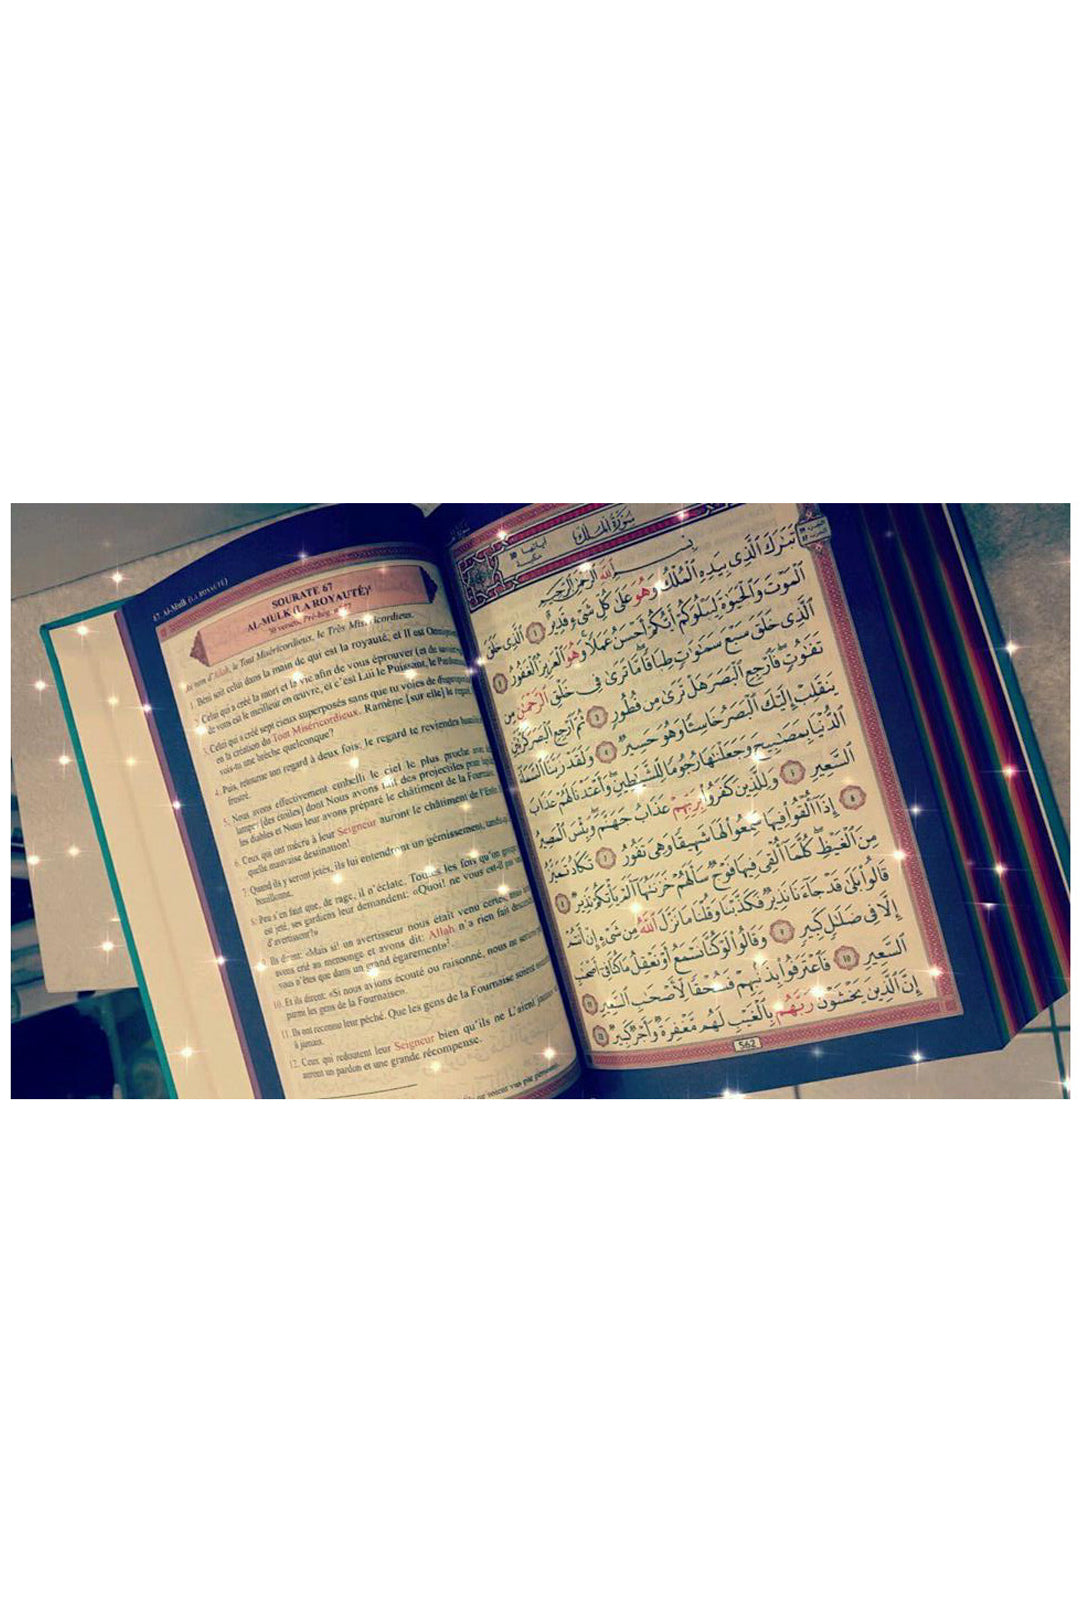 67. Al-Mulk (LA ROYAUTÉ)
SOURATE 67
AL-MULK (LA ROYAUTÉ)¹
30 versets, Pré-hég.
Au nom d'Allah, le Tout Miséricordieux, le Très Miséricordieux.
1. Béni soit celui dans la main de qui est la royauté, et Il est
2. Celui qui a créé la mort et la vie afin de vous éprouver (et de savoir)
de vous est le meilleur en œuvre, et c'est Lui le Puissant, le
3. Celui qui a créé sept cieux superposés sans que tu voies de
en la création du Tout Miséricordieux. Ramène [sur elle] le regard.
vois-tu une brèche quelconque?
4. Puis, retourne ton regard à deux fois: le regard te reviendra
frustré.
5. Nous avons effectivement embelli le ciel le plus proche avec
[des étoiles] dont Nous avons fait des projectiles pour
les diables et Nous leur avons préparé le châtiment de la Fournaise.
6. Ceux qui ont mécru à leur Seigneur auront le châtiment de l'Enfer
quelle mauvaise destination!
7. Quand ils y seront jetés, ils lui entendront un gémissement,
bouillonne.
8. Peu s'en faut que, de rage, il n'éclate. Toutes les fois qu'un
est jeté, ses gardiens leur demandent: «Quoi! ne vous est-il pas
d'avertisseur?»
9. Ils dirent: «Mais si! un avertisseur nous était venu certes,
avons crié au mensonge et avons dit: Allah n'a rien fait
vous n'êtes que dans un grand égarement»
10. Et ils dirent: «Si nous avions écouté ou raisonné, nous ne
parmi les gens de la Fournaise».
11. Ils ont reconnu leur péché. Que les gens de la Fournaise soient
à jamais.
12. Ceux qui redoutent leur Seigneur bien qu'ils ne L'aient jamais
auront un pardon et une grande récompense.
سُورَةُ المُلك
بِسْمِ ٱللَّهِ ٱلرَّحْمَٰنِ ٱلرَّحِيمِ
تَبَٰرَكَ ٱلَّذِى بِيَدِهِ ٱلْمُلْكُ وَهُوَ عَلَىٰ كُلِّ شَىْءٍ قَدِيرٌ ١ ٱلَّذِى خَلَقَ
ٱلْمَوْتَ وَٱلْحَيَوٰةَ لِيَبْلُوَكُمْ أَيُّكُمْ أَحْسَنُ عَمَلًا وَهُوَ ٱلْعَزِيزُ ٱلْغَفُورُ ٢
ٱلَّذِى خَلَقَ سَبْعَ سَمَٰوَٰتٍ طِبَاقًا مَّا تَرَىٰ فِى خَلْقِ ٱلرَّحْمَٰنِ مِن
تَفَٰوُتٍ فَٱرْجِعِ ٱلْبَصَرَ هَلْ تَرَىٰ مِن فُطُورٍ ٣ ثُمَّ ٱرْجِعِ ٱلْبَصَرَ كَرَّتَيْنِ
يَنقَلِبْ إِلَيْكَ ٱلْبَصَرُ خَاسِئًا وَهُوَ حَسِيرٌ ٤ وَلَقَدْ زَيَّنَّا ٱلسَّمَآءَ
ٱلدُّنْيَا بِمَصَٰبِيحَ وَجَعَلْنَٰهَا رُجُومًا لِّلشَّيَٰطِينِ وَأَعْتَدْنَا لَهُمْ عَذَابَ
ٱلسَّعِيرِ ٥ وَلِلَّذِينَ كَفَرُوا۟ بِرَبِّهِمْ عَذَابُ جَهَنَّمَ وَبِئْسَ ٱلْمَصِيرُ
٦ إِذَآ أُلْقُوا۟ فِيهَا سَمِعُوا۟ لَهَا شَهِيقًا وَهِىَ تَفُورُ ٧ تَكَادُ تَمَيَّزُ
مِنَ ٱلْغَيْظِ كُلَّمَآ أُلْقِىَ فِيهَا فَوْجٌ سَأَلَهُمْ خَزَنَتُهَآ أَلَمْ يَأْتِكُمْ نَذِيرٌ ٨
قَالُوا۟ بَلَىٰ قَدْ جَآءَنَا نَذِيرٌ فَكَذَّبْنَا وَقُلْنَا مَا نَزَّلَ ٱللَّهُ مِن شَىْءٍ إِنْ أَنتُمْ
إِلَّا فِى ضَلَٰلٍ كَبِيرٍ ٩ وَقَالُوا۟ لَوْ كُنَّا نَسْمَعُ أَوْ نَعْقِلُ مَا كُنَّا فِىٓ أَصْحَٰبِ
ٱلسَّعِيرِ ١٠ فَٱعْتَرَفُوا۟ بِذَنۢبِهِمْ فَسُحْقًا لِّأَصْحَٰبِ ٱلسَّعِيرِ ١١
إِنَّ ٱلَّذِينَ يَخْشَوْنَ رَبَّهُم بِٱلْغَيْبِ لَهُم مَّغْفِرَةٌ وَأَجْرٌ كَبِيرٌ ١٢
562